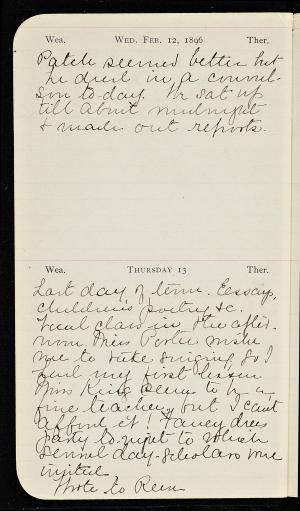 Wea. WED. FEB. 12, 1896 Ther.
Patch seemed better but
he died in a convul-
sion to-day. We sat up
till about midnight
& made out reports.
Wea. THURSDAY 13 Ther.
Last day of term. Essays,
children's poetry &c.
Vocal class in the after-
noon. Miss Porter wishes
me to take singing so I
had my first lesson
Miss King seems to be a
fine teacher, but I can't
afford it! Fancy dress
party to-night to which
several day-scholars were
invited
Wrote to